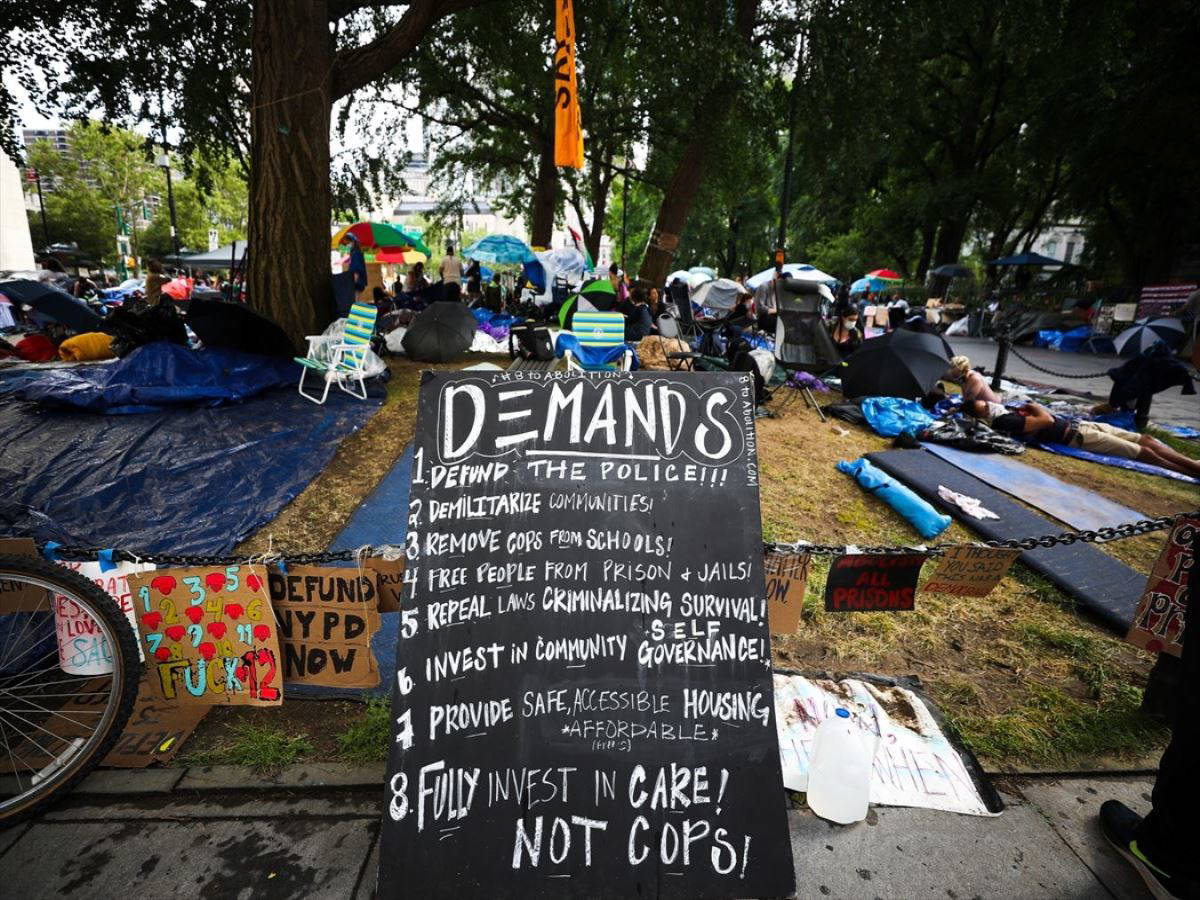 #8 TO ABOLITION
8 TO ABOLITION.COM
DEMANDS
1. DEFUND THE POLICE!!!
2. DEMILITARIZE COMMUNITIES!
3 REMOVE COPS FROM SCHOOLS!
4 FREE PEOPLE FROM PRISON & JAILS!
5 REPEAL LAWS CRIMINALIZING SURVIVAL!
6. INVEST IN COMMUNITY SELF
GOVERNANCE!
7 PROVIDE SAFE, ACCESSIBLE HOUSING
*AFFORDABLE*
8. FULLY INVEST IN CARE!
NOT COPS!
1 2 3 4 5
6
7 8 9
10 11
FUCK 12
DEFUND
NYPD
NOW
ABOLISH
ALL
PRISONS
I THOUGH
YOU SAID
THIS WAS A
WHEN